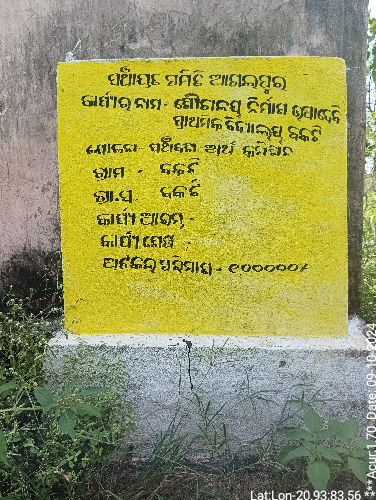 ପଞ୍ଚାୟତ ସମିତି ଆଗଲପୁର
କାର୍ଯ୍ୟର ନାମ - ଶୌଚାଳୟ ନିର୍ମାଣ
ପ୍ରାଥମିକ ବିଦ୍ୟାଳୟ ବକଟି
ଯୋଜନା - ପଞ୍ଚଦଶ ଅର୍ଥ କମିଶନ
ଗ୍ରାମ - ବକଟି
ଗ୍ରା.ପ - ବକଟି
କାର୍ଯ୍ୟ ଆରମ୍ଭ -
କାର୍ଯ୍ୟ ଶେଷ -
ଅଟକଳ ପରିମାଣ - ୧୦୦୦୦୦/
Date: 09-10-2024
***Acur:1.70
Lat:Lon-20.93.83.56